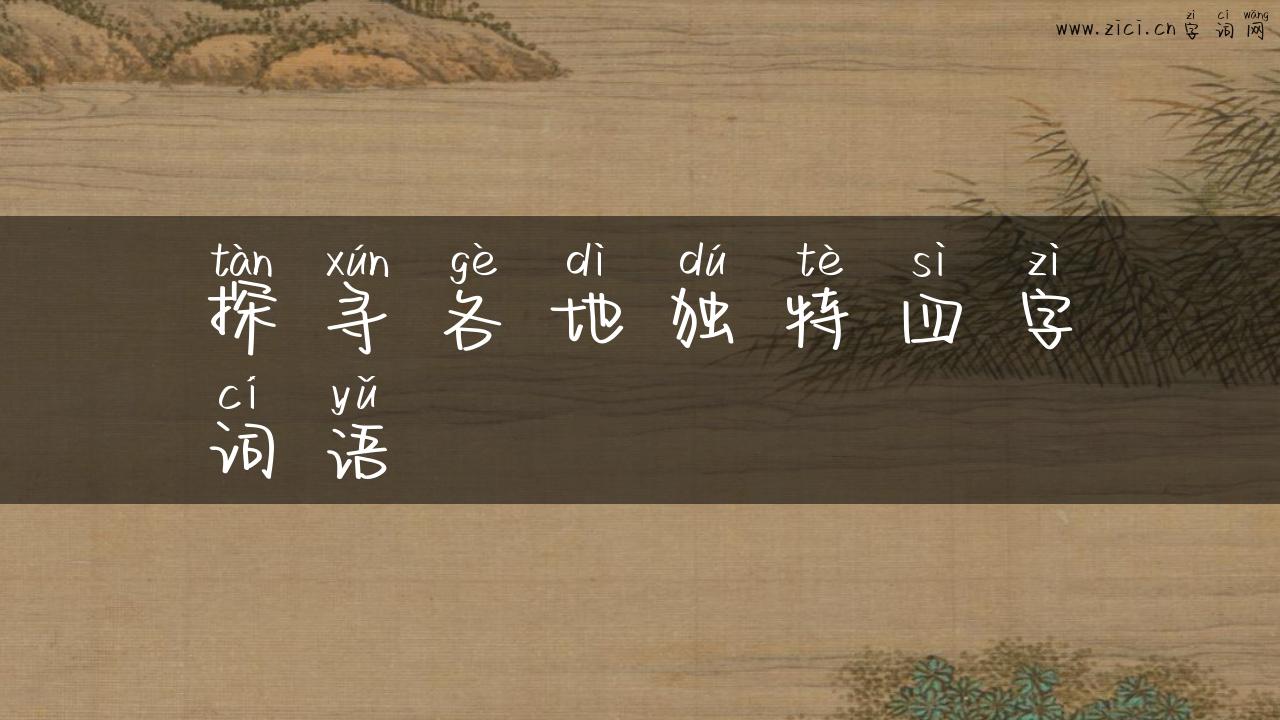 zì cí wǎng
www.zici.cn 字词网
tàn xún gè dì dú tè sì zì
探寻各地独特四字
cí yǔ
词语